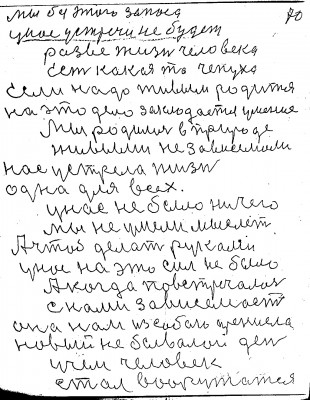 мы бу этого запоса 70
унас устречи не будет
разве жизн человека
ест какая то чепуха
если надо живым родится
на это дело закладается умение
Мы родилис в природе
живыми независемоми
нас устрела жизн
одна для всех.
унас не было ничего
мы не умели мыслет
А чтоб делат руками
унас на это сил не было
А когда повстречалас
снами зависемост
она нам из себя принесла
новый не бывалой ден
и чем человек
стал вооружатся